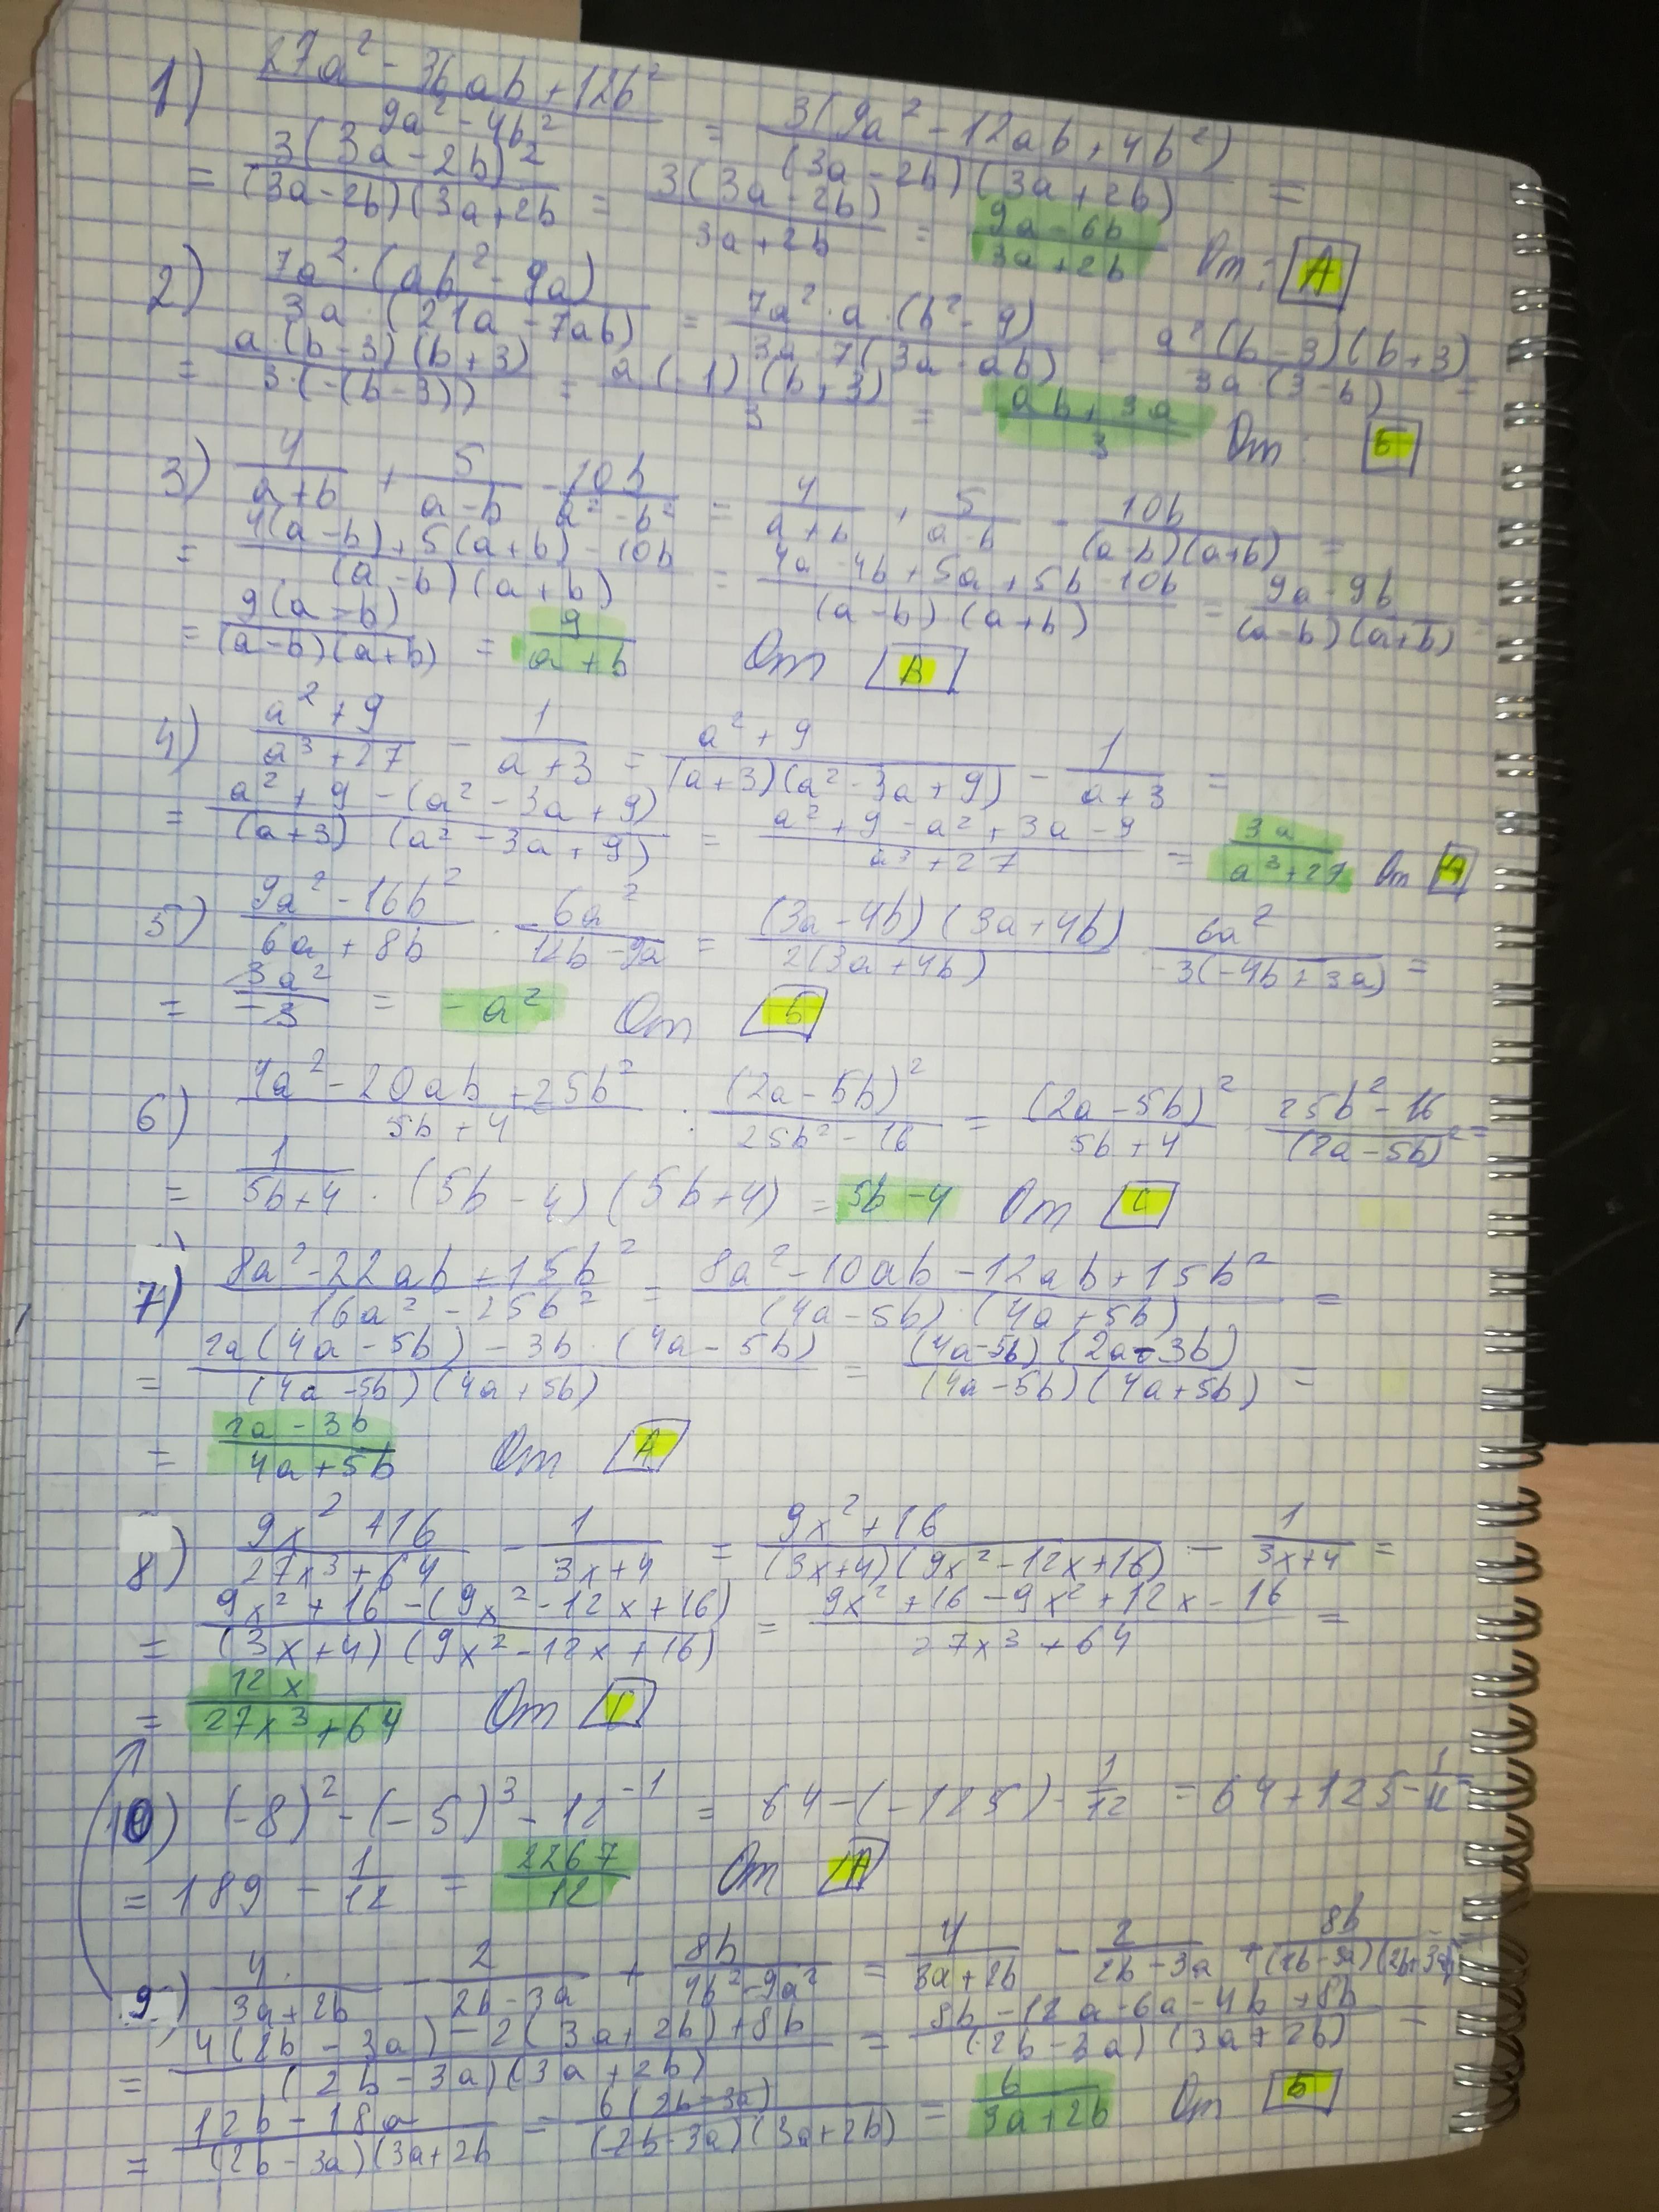 1) (27a² - 36ab + 12b²)/(9a² - 4b²) = 3(9a² - 12ab + 4b²)/((3a - 2b)(3a + 2b)) =
= 3(3a - 2b)²/((3a - 2b)(3a + 2b) = 3(3a - 2b)/(3a + 2b) = (9a - 6b)/(3a + 2b) От: A
2) 7a²·(ab² - 9a)/(3a·(21a - 7ab)) = 7a²·a·(b² - 9)/(3a·7(3a - ab)) = a²(b - 3)(b + 3)/(3a·(3 - b)) =
= a·(b - 3)(b + 3)/(3·(-(b - 3))) = a(-1)(b + 3)/3 = - (ab + 3a)/3 От: Б
3) 4/(a + b) + 5/(a - b) - 10b/(a² - b²) = 4/(a + b) + 5/(a - b) - 10b/((a - b)(a + b)) =
= (4(a - b) + 5(a + b) - 10b)/((a - b)(a + b)) = (4a - 4b + 5a + 5b - 10b)/((a - b)·(a + b)) = (9a - 9b)/((a - b)(a + b)) =
= 9(a - b)/((a - b)(a + b)) = 9/(a + b) От B
4) (a² + 9)/(a³ + 27) - 1/(a + 3) = (a² + 9)/((a + 3)(a² - 3a + 9)) - 1/(a + 3) =
= (a² + 9 - (a² - 3a + 9))/((a + 3)(a² - 3a + 9)) = (a² + 9 - a² + 3a - 9)/(a³ + 27) = 3a/(a³ + 27) От
5) (9a² - 16b²)/(6a + 8b) · 6a²/(12b - 9a) = (3a - 4b)(3a + 4b)/(2(3a + 4b)) · 6a²/(-3(-4b + 3a)) =
= 3a²/-3 = - a² От Б
6) (4a² - 20ab + 25b²)/(5b + 4) : (2a - 5b)²/(25b² - 16) = (2a - 5b)²/(5b + 4) · (25b² - 16)/(2a - 5b)² =
= 1/(5b + 4) · (5b - 4)(5b + 4) = 5b - 4 От С
7) (8a² - 22ab + 15b²)/(16a² - 25b²) = (8a² - 10ab - 12ab + 15b²)/((4a - 5b)·(4a + 5b)) =
= (2a(4a - 5b) - 3b·(4a - 5b))/((4a - 5b)(4a + 5b)) = (4a - 5b)(2a - 3b)/((4a - 5b)(4a + 5b)) =
= (2a - 3b)/(4a + 5b) От A
8) (9x² + 16)/(27x³ + 64) - 1/(3x + 4) = (9x² + 16)/((3x + 4)(9x² - 12x + 16)) - 1/(3x + 4) =
= (9x² + 16 - (9x² - 12x + 16))/((3x + 4)(9x² - 12x + 16)) = (9x² + 16 - 9x² + 12x - 16)/(27x³ + 64) =
= 12x/(27x³ + 64) От
10) (-8)² - (-5)³ - 12⁻¹ = 64 - (-125) - 1/12 = 64 + 125 - 1/12
= 189 - 1/12 = 2267/12 От A
9) 4/(3a + 2b) - 2/(2b - 3a) + 8b/(4b² - 9a²) = 4/(3a + 2b) - 2/(2b - 3a) + 8b/((2b - 3a)(2b + 3a)) =
= (4(2b - 3a) - 2(3a + 2b) + 8b)/((2b - 3a)(3a + 2b)) = (8b - 12a - 6a - 4b + 8b)/((2b - 3a)(3a + 2b)) =
= (12b - 18a)/((2b - 3a)(3a + 2b = 6(2b - 3a)/((2b - 3a)(3a + 2b)) = 6/(3a + 2b) От Б